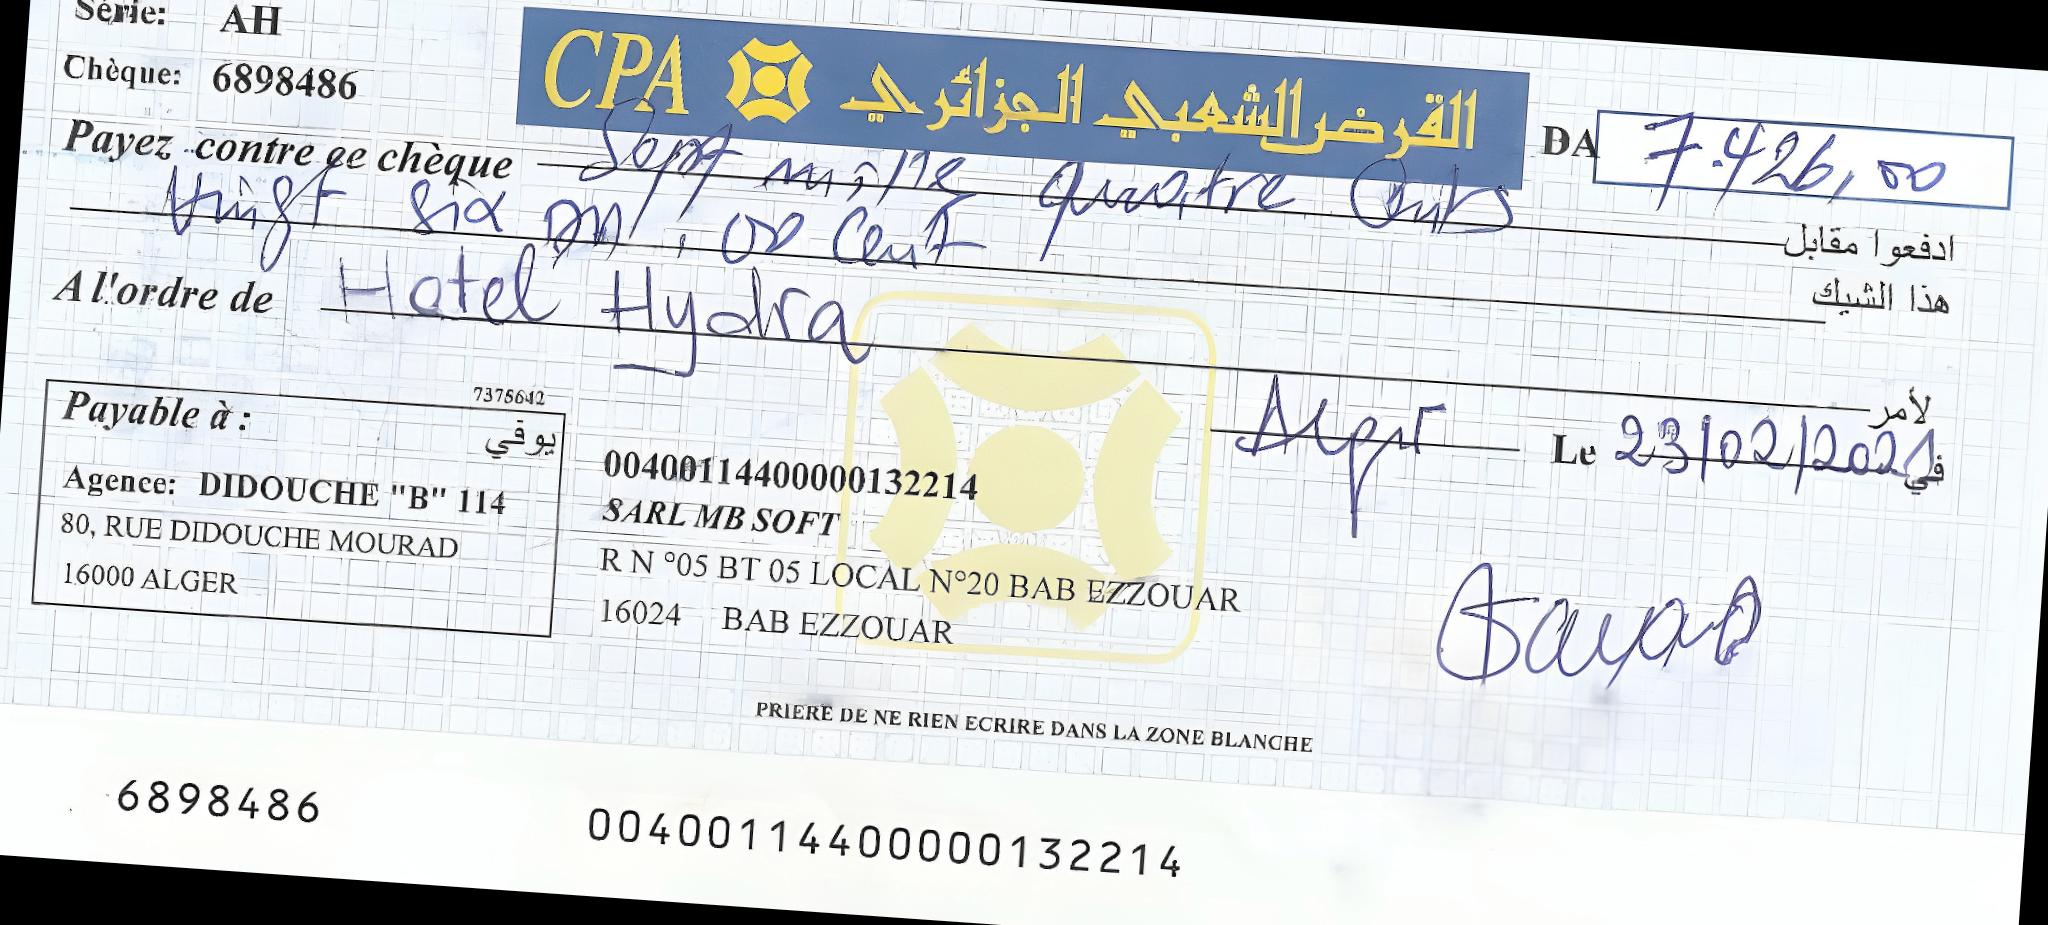 Série: AH
Chèque: 6898486
CPA القرض الشعبي الجزائري
DA 7.426,00
Payez contre ce chèque Sept mille quatre Cents
ادفعوا مقابل
vingt six DA, 00 Cent
هذا الشيك
A l'ordre de Hotel Hydra
لأمر
Payable à : 7375642
يوقي
Agence: DIDOUCHE "B" 114
80, RUE DIDOUCHE MOURAD
16000 ALGER
00400114400000132214
SARL MB SOFT
R N °05 BT 05 LOCAL N°20 BAB EZZOUAR
16024 BAB EZZOUAR
Alger Le 23/02/2021 في
PRIERE DE NE RIEN ECRIRE DANS LA ZONE BLANCHE
6898486 00400114400000132214